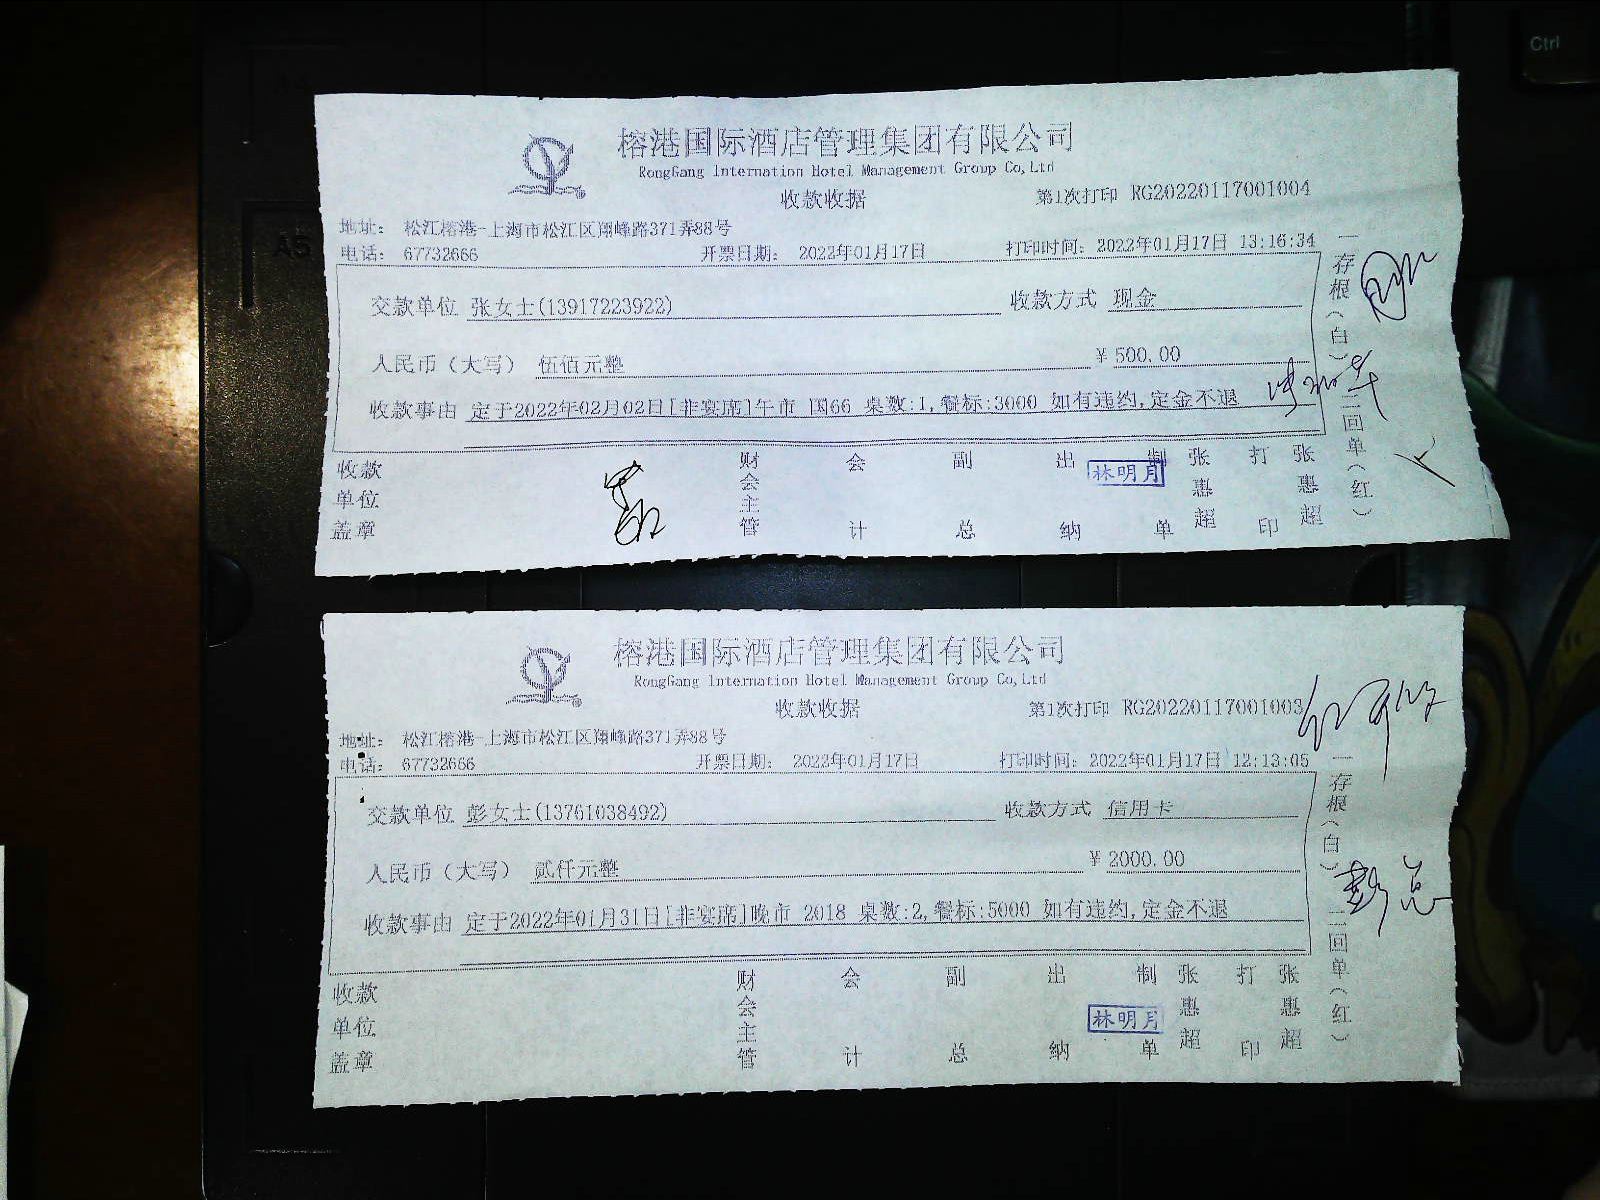 Ctrl
A5
榕港国际酒店管理集团有限公司
RongGang Internation Hotel Management Group Co,Ltd
收款收据
第1次打印 RG20220117001004
地址: 松江榕港-上海市松江区翔峰路371弄88号
电话: 67732666 开票日期: 2022年01月17日 打印时间: 2022年01月17日 13:16:34
交款单位 张女士(13917223922) 收款方式 现金
人民币(大写) 伍佰元整 ¥ 500.00
收款事由 定于2022年02月02日[非宴席]午市 国66 桌数:1,餐标:3000 如有违约,定金不退
收款单位盖章 财会主管 会计 副总 出纳 林明月 制单 张惠超 打印 张惠超
一存根(白) 二回单(红)
榕港国际酒店管理集团有限公司
RongGang Internation Hotel Management Group Co,Ltd
收款收据
第1次打印 RG20220117001003
地址: 松江榕港-上海市松江区翔峰路371弄88号
电话: 67732666 开票日期: 2022年01月17日 打印时间: 2022年01月17日 12:13:05
交款单位 彭女士(13761038492) 收款方式 信用卡
人民币(大写) 贰仟元整 ¥ 2000.00
收款事由 定于2022年01月31日[非宴席]晚市 2018 桌数:2,餐标:5000 如有违约,定金不退
收款单位盖章 财会主管 会计 副总 出纳 林明月 制单 张惠超 打印 张惠超
一存根(白) 二回单(红)